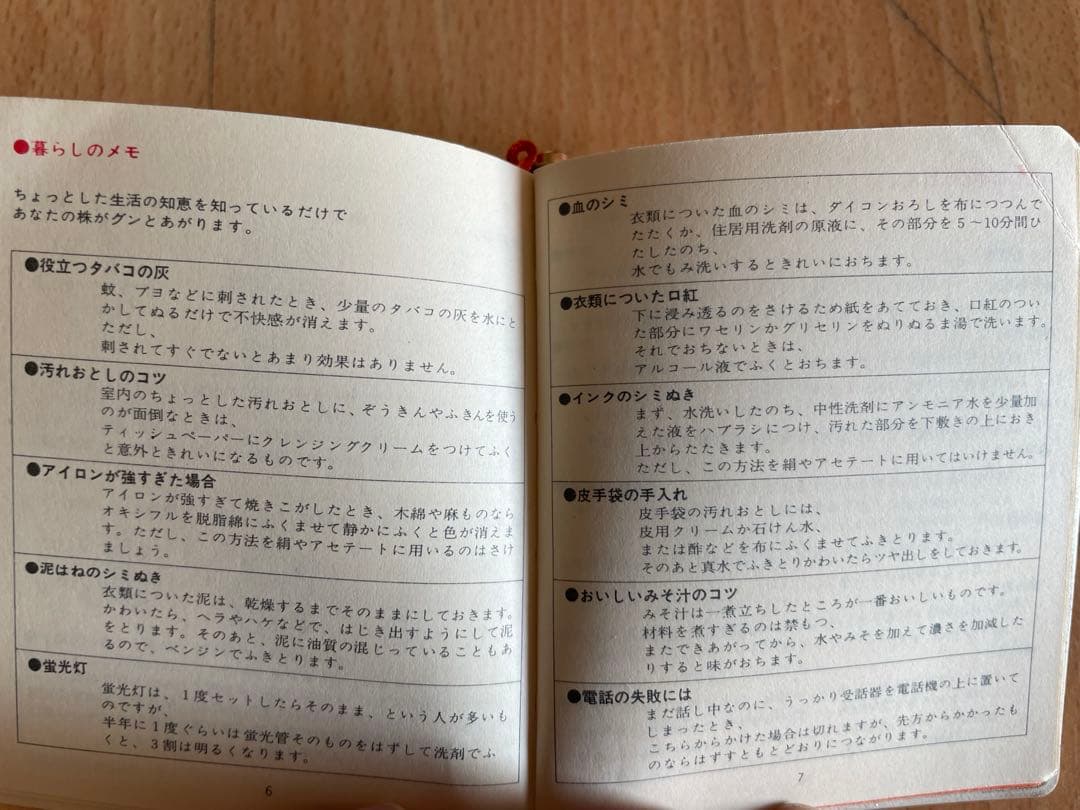 ●暮らしのメモ
ちょっとした生活の知恵を知っているだけで
あなたの株がグンとあがります。
●役立つタバコの灰
蚊、ブヨなどに刺されたとき、少量のタバコの灰を水にと
かしてぬるだけで不快感が消えます。
ただし、
刺されてすぐでないとあまり効果はありません。
●汚れおとしのコツ
室内のちょっとした汚れおとしに、ぞうきんやふきんを使う
のが面倒なときは、
ティッシュペーパーにクレンジングクリームをつけてふく
と意外ときれいになるものです。
●アイロンが強すぎた場合
アイロンが強すぎて焼きこがしたとき、木綿や麻ものなら
オキシフルを脱脂綿にふくませて静かにふくと色が消えま
す。ただし、この方法を絹やアセテートに用いるのはさけ
ましょう。
●泥はねのシミぬき
衣類についた泥は、乾燥するまでそのままにしておきます。
かわいたら、ヘラやハケなどで、はじき出すようにして泥
をとります。そのあと、泥に油質の混じっていることもあ
るので、ベンジンでふきとります。
●蛍光灯
蛍光灯は、1度セットしたらそのまま、という人が多いも
のですが、
半年に1度ぐらいは蛍光管そのものをはずして洗剤でふ
くと、3割は明るくなります。
6
●血のシミ
衣類についた血のシミは、ダイコンおろしを布につつんで
たたくか、住居用洗剤の原液に、その部分を5～10分間ひ
たしたのち、
水でもみ洗いするときれいにおちます。
●衣類についた口紅
下に浸み透るのをさけるため紙をあてておき、口紅のつい
た部分にワセリンかグリセリンをぬりぬるま湯で洗います。
それでおちないときは、
アルコール液でふくとおちます。
●インクのシミぬき
まず、水洗いしたのち、中性洗剤にアンモニア水を少量加
えた液をハブラシにつけ、汚れた部分を下敷きの上におき
上からたたきます。
ただし、この方法を絹やアセテートに用いてはいけません。
●皮手袋の手入れ
皮手袋の汚れおとしには、
皮用クリームか石けん水、
または酢などを布にふくませてふきとります。
そのあと真水でふきとりかわいたらツヤ出しをしておきます。
●おいしいみそ汁のコツ
みそ汁は一煮立ちしたところが一番おいしいものです。
材料を煮すぎるのは禁もつ、
またできあがってから、水やみそを加えて濃さを加減した
りすると味がおちます。
●電話の失敗には
まだ話し中なのに、うっかり受話器を電話機の上に置いて
しまったとき、
こちらからかけた場合は切れますが、先方からかかったも
のならはずすともとどおりにつながります。
7